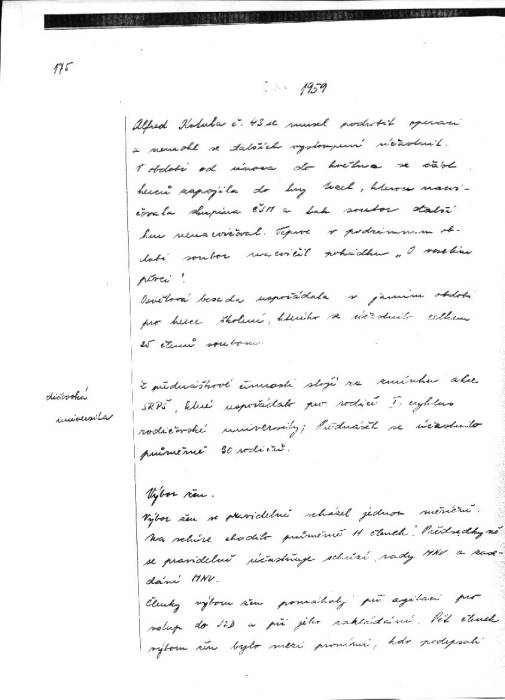 175
1959
Alfred Kotula č. 43 se musel podrobit operaci
a nemohl se dalších vystoupení účastnit.
V období od února do května se část
herců zapojila do hry Zuech, kterou nacvi-
čovala skupina ČSM a tak soubor další
hru nenacvičoval. Teprve v podzimním ob-
dobí soubor nacvičil pohádku „O veselém
ptáci!
Osvětová beseda uspořádala v jarním období
pro herce školení, kterého se účastnilo celkem
25 členů souboru.
rodičovská
universita
Z přednáškové činnosti stojí za zmínku akce
SRPŠ, které uspořádalo pro rodiče I. cyklus
rodičovské university; Přednášek se účastnilo
průměrně 30 rodičů.
Výbor žen.
Výbor žen se pravidelně scházel jednou měsíčně.
Na schůze chodilo průměrně 11 členek! Předsedkyně
se pravidelně účastňuje schůzí rady MNV a zase-
dání MNV.
Členky výboru žen pomáhaly při agitaci pro
vstup do JZD a při jeho zakládání. Pět členek
výboru žen bylo mezi prvními, kdo podepsali